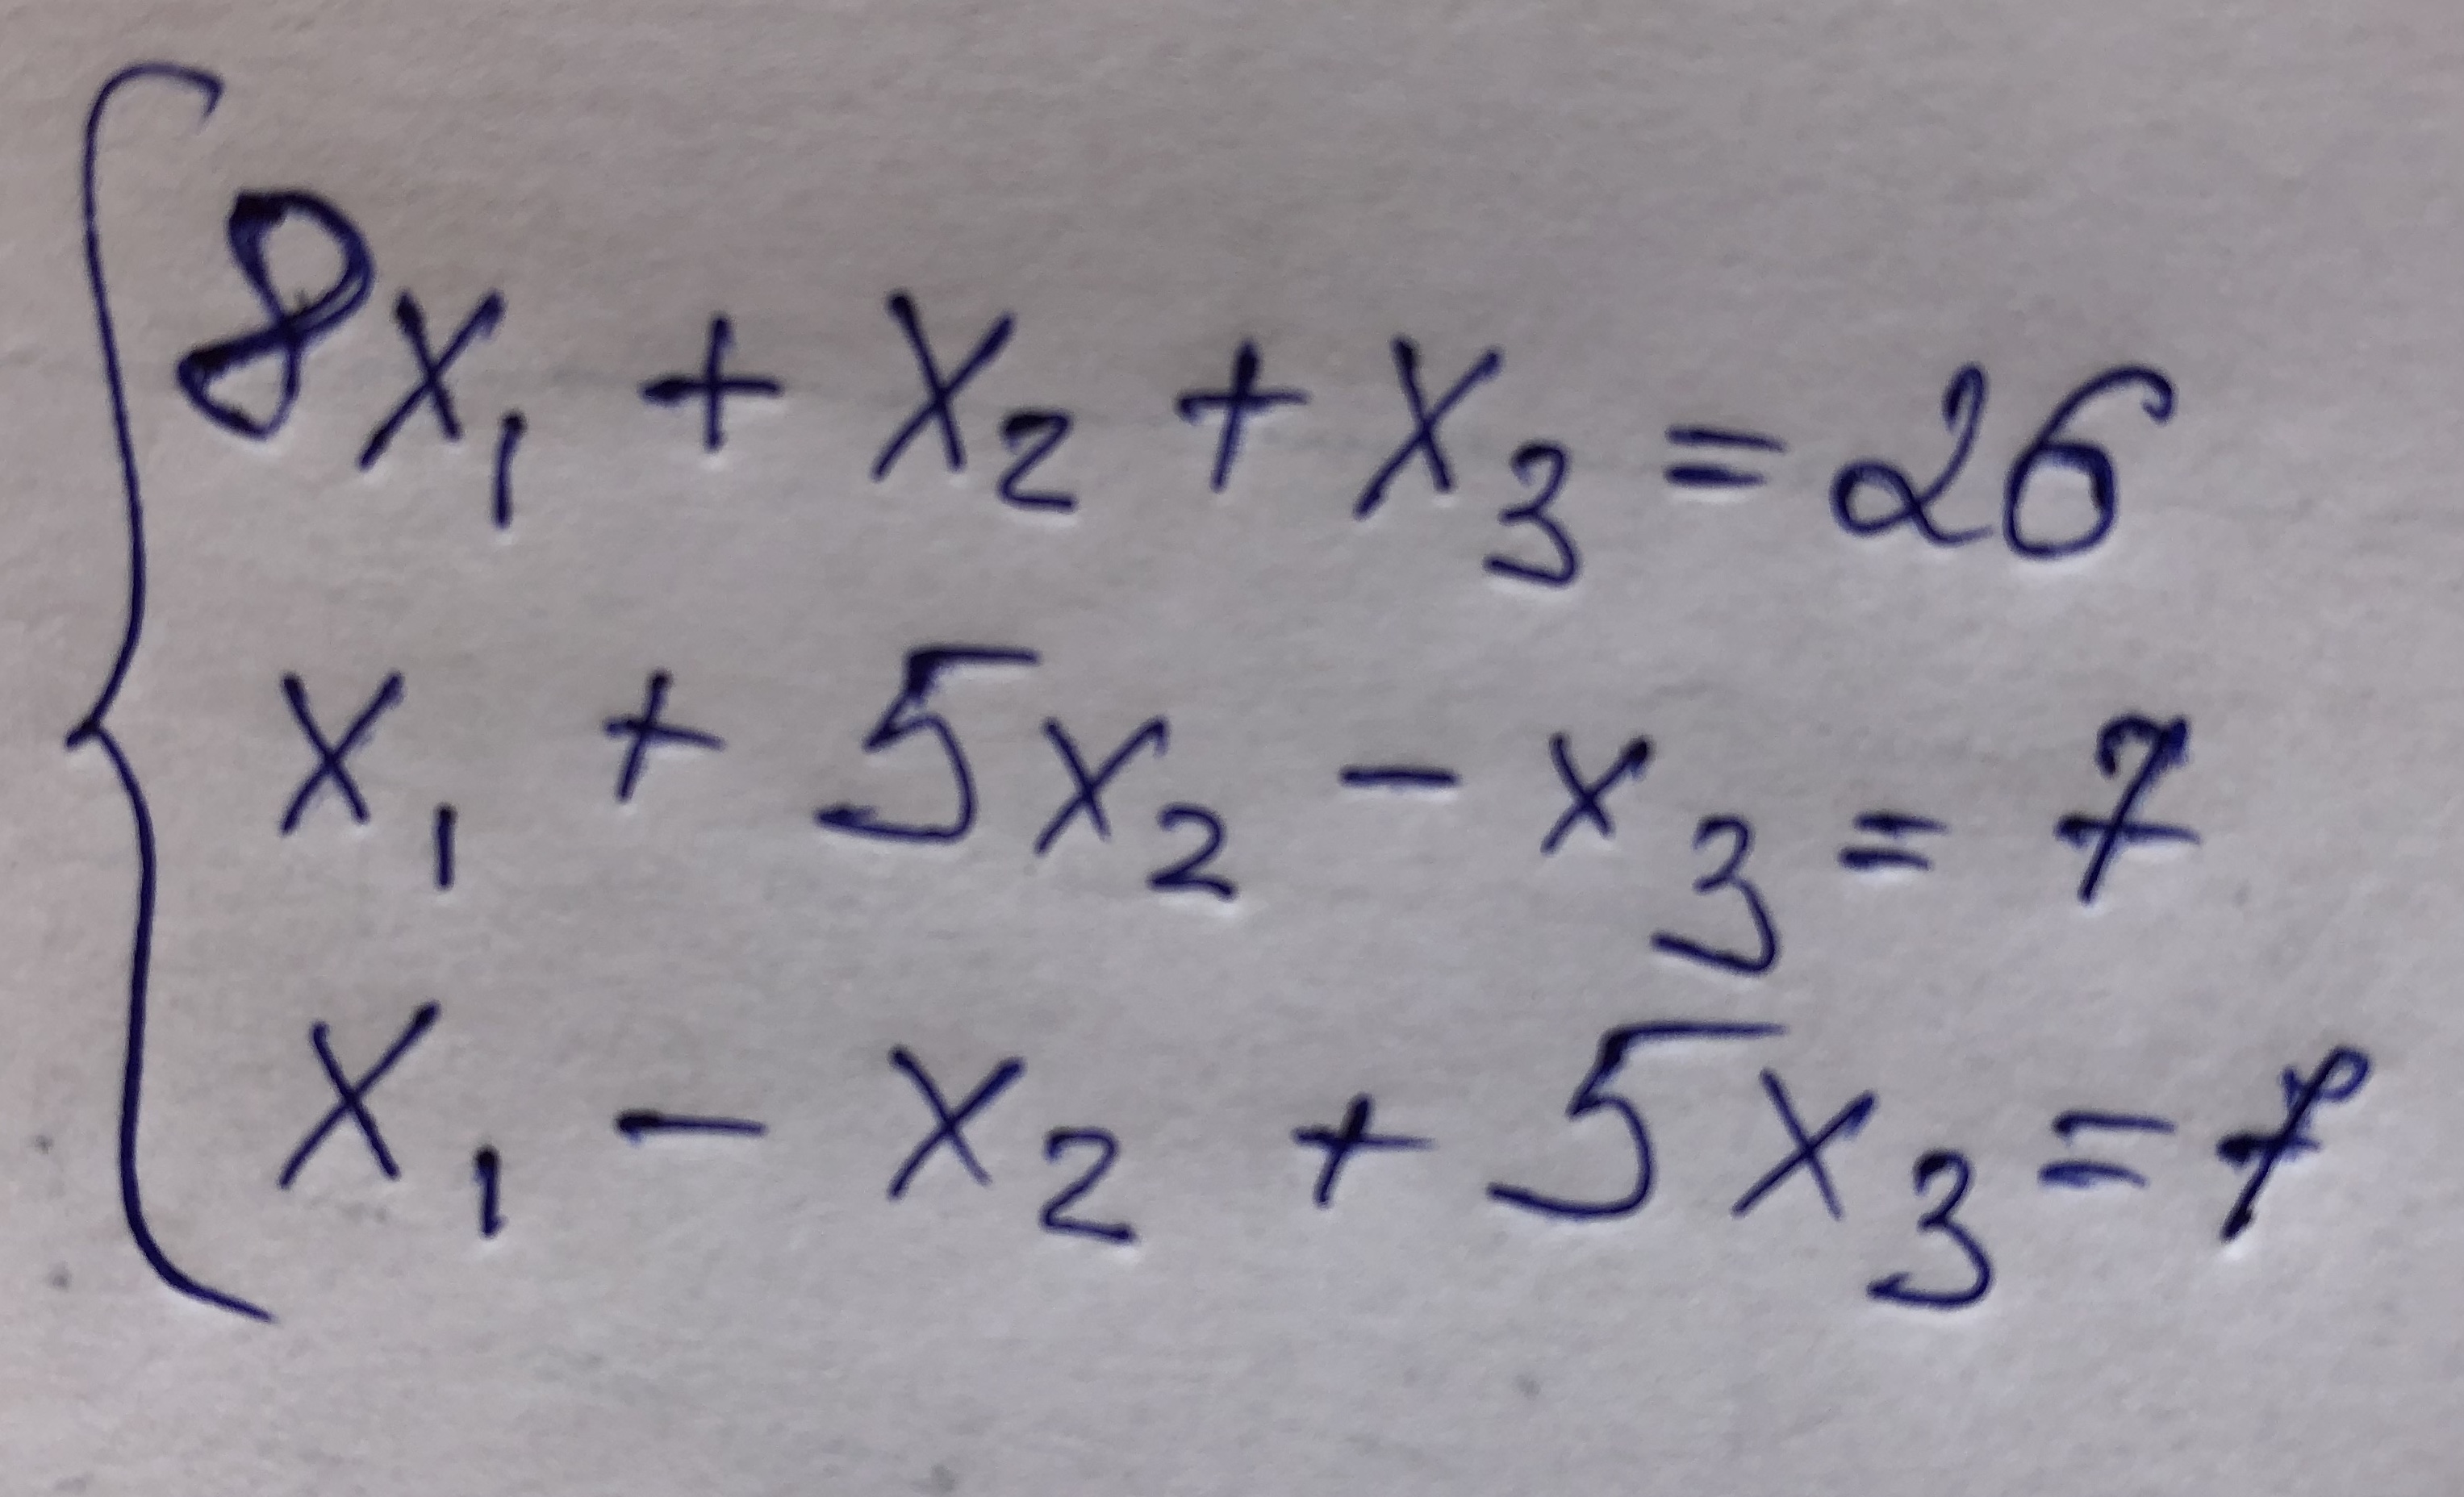 8x₁ + x₂ + x₃ = 26
x₁ + 5x₂ - x₃ = 7
x₁ - x₂ + 5x₃ = 7